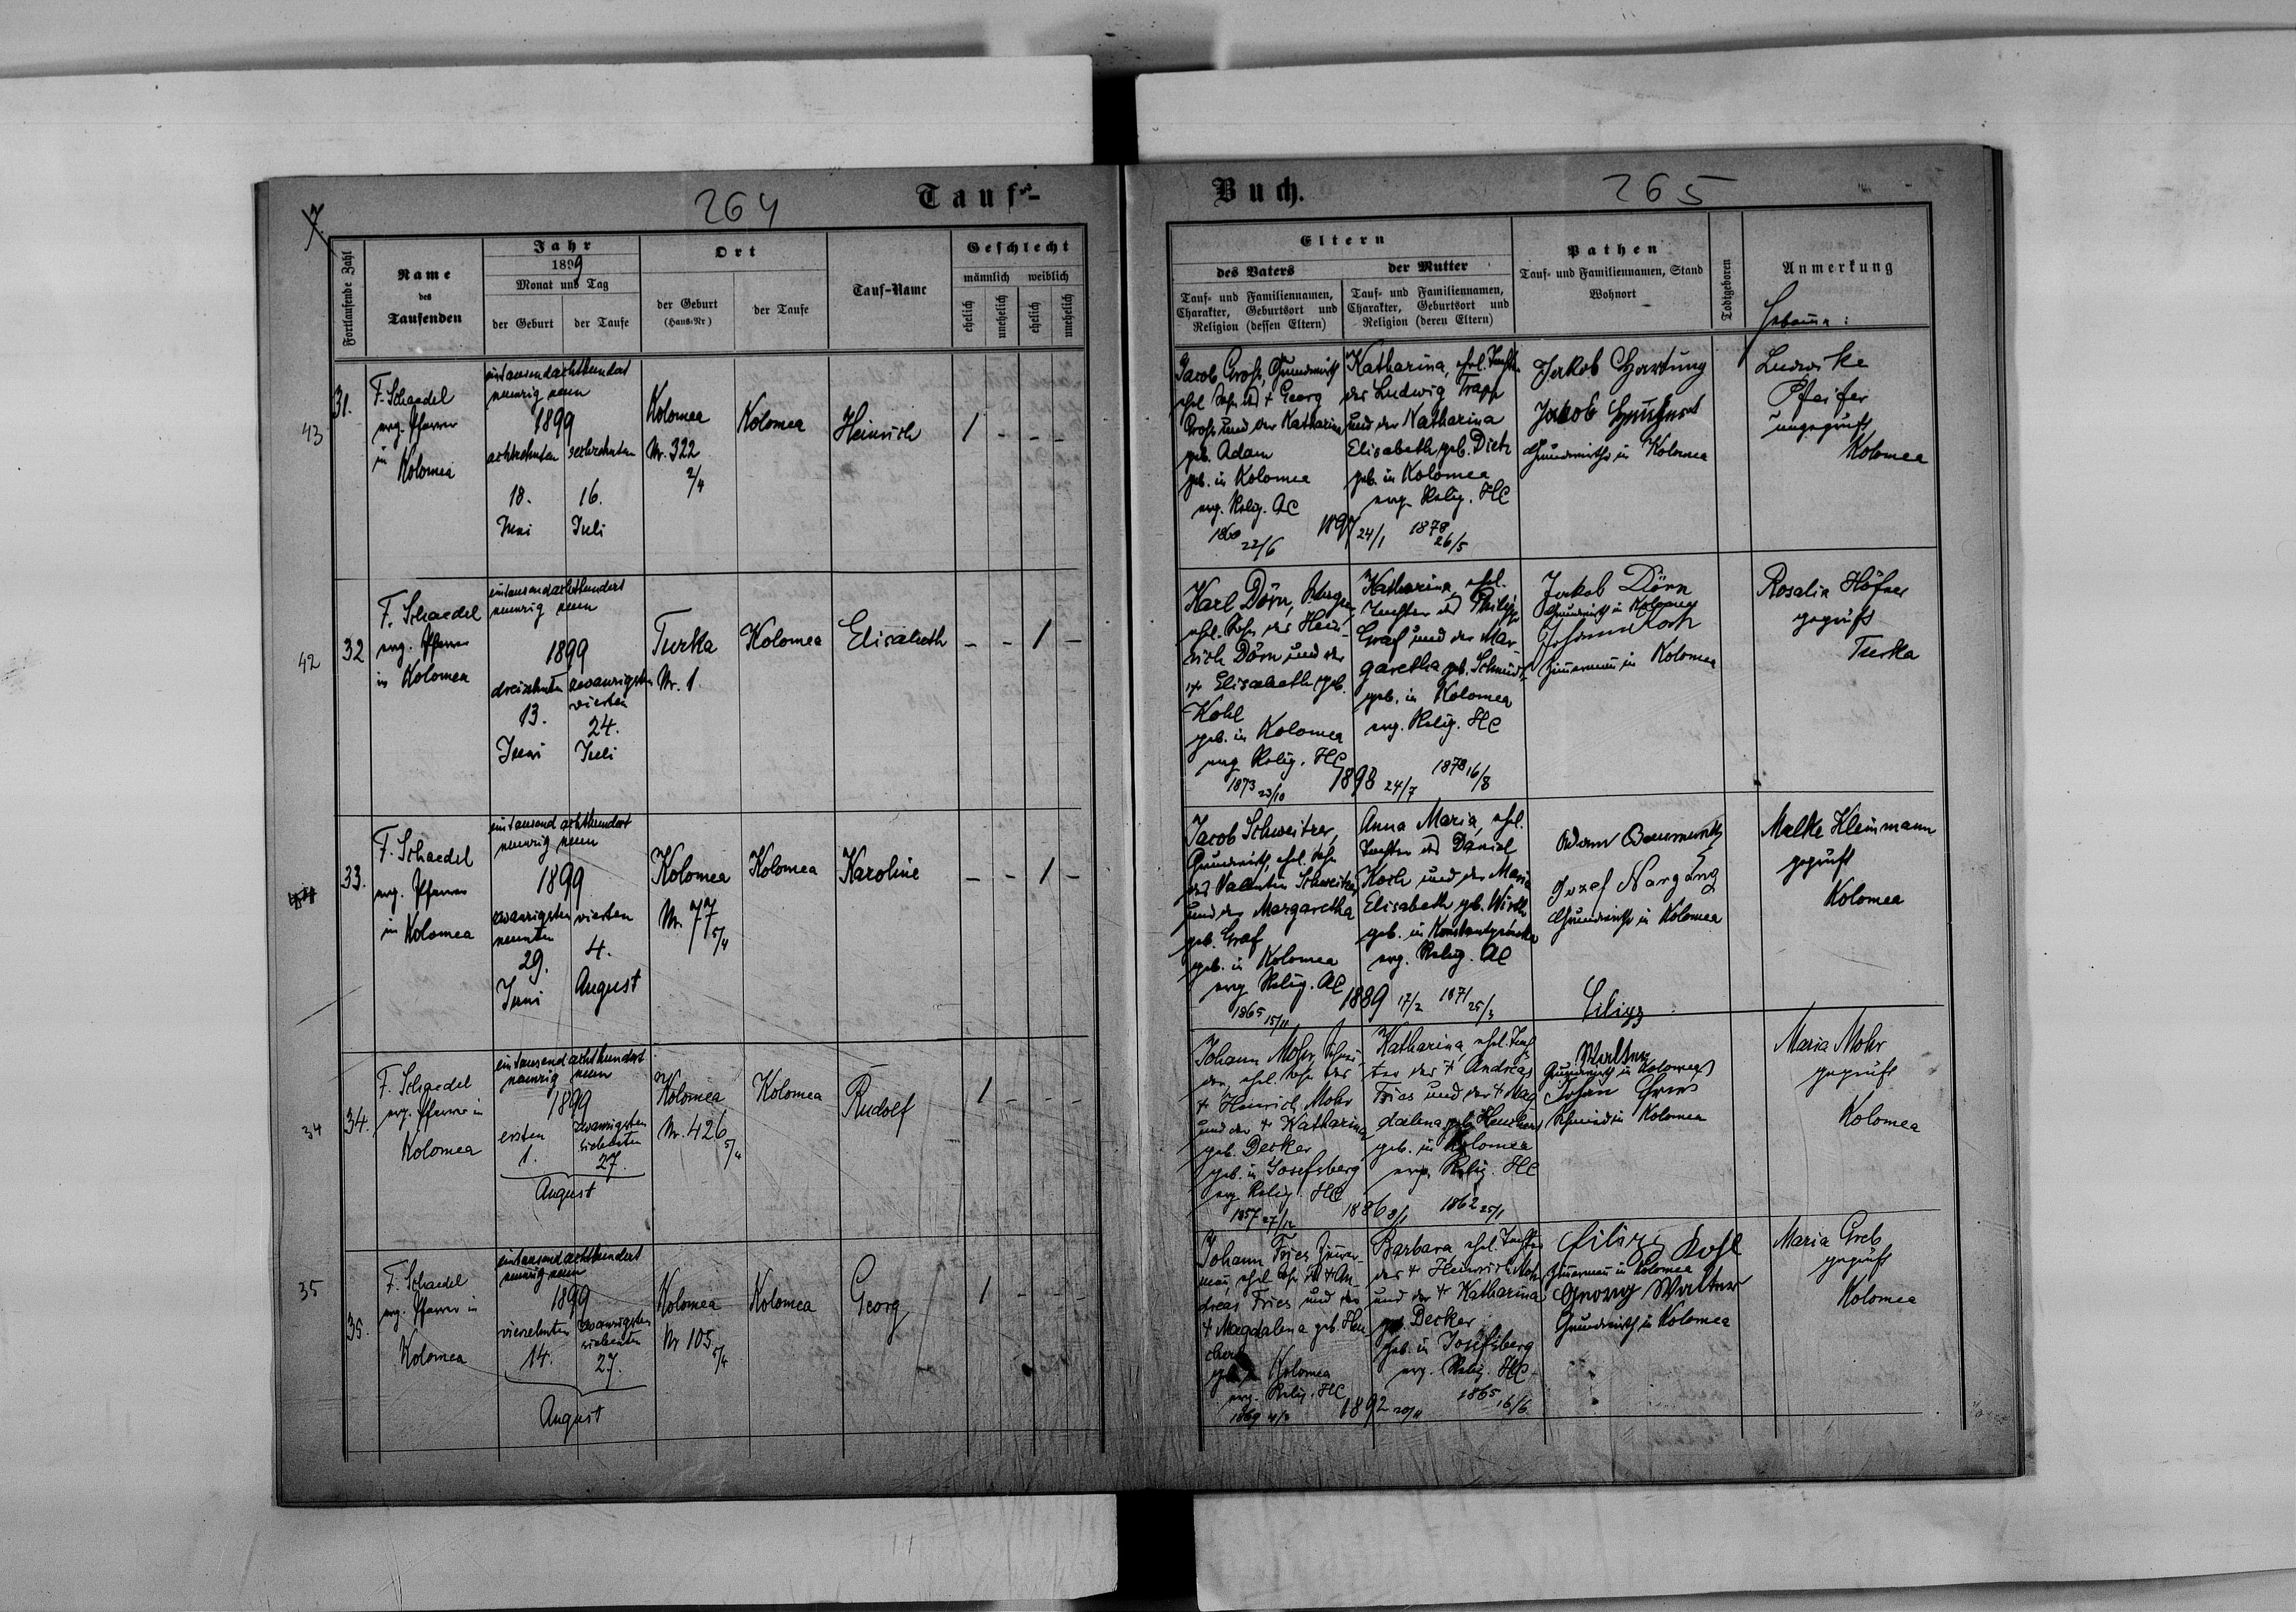 264
Tauf-
Buch.
265
7.
Fortlaufende Zahl
Name
des
Taufenden
Jahr
1899
Monat und Tag
der Geburt
der Taufe
Ort
der Geburt
(Haus-Nr)
der Taufe
Tauf-Name
Geschlecht
männlich
weiblich
ehelich
unehelich
ehelich
unehelich
Eltern
des Vaters
der Mutter
Tauf- und Familiennamen,
Charakter, Geburtsort und
Religion (dessen Eltern)
Tauf- und Familiennamen,
Charakter, Geburtsort und
Religion (deren Eltern)
Pathen
Tauf- und Familiennamen, Stand
Wohnort
Todtgeboren
Anmerkung
43
31.
F. Schaedel
evg. Pfarrer
in
Kolomea
eintausendachthundert
neunzig neun
1899
achtzehnten
18.
Juni
sechzehnten
16.
Juli
Kolomea
Nr. 322
2/4
Kolomea
Heinrich
1 - - -
Jacob Groß, Grundwirth
ehl. Sohn des + Georg
Groß und der Katharina
geb. Adam
geb. in Kolomea
evg. Relig. AC
1860 22/6
1897 24/1
Katharina, ehl. Tochter
des Ludwig Trapp
und der Katharina
Elisabeth geb. Dietz
geb. in Kolomea
evg. Relig. HC
1878 26/5
Jakob Hartung
Jakob
Grundwirthe in Kolomea
Ludwike
Pfeifer
ungeprüft
Kolomea
42
32
F. Schaedel
evg. Pfarrer
in Kolomea
eintausendachthundert
neunzig neun
1899
dreizehnten
13.
Juni
zwanzigsten
vierten
24.
Juli
Turka
Nr. 1.
Kolomea
Elisabeth
- - 1 -
Karl Dörn,
ehl. Sohn des Hein-
rich Dörn und der
+ Elisabeth geb.
Kohl
geb. in Kolomea
evg Relig. HC
1873 23/10
1898 24/7
Katharina, ehl.
Tochter des Philipp
Graf und der Mar-
garetha geb. Schmidt
geb. in Kolomea
evg. Relig. HC
1878 16/8
Jakob Dörn
Grundwirth in Kolomea
Johann Koch
Zimermann in Kolomea
Rosalia Höfner
geprüft
Turka
33.
F. Schaedel
evg. Pfarrer
in Kolomea
eintausend achthundert
neunzig neun
1899
zwanzigsten
neunten
29.
Juni
vierten
4.
August
Kolomea
Nr. 77
5/4
Kolomea
Karoline
- - 1 -
Jacob Schweitzer,
Grundwirth, ehl. Sohn
des Valentin Schweitzer
und der Margaretha
geb. Graf
geb. in Kolomea
evg Relig. AC
1865 15/11
1889 17/2
Anna Maria, ehl.
Tochter des Daniel
Koch und der Maria
Elisabeth geb. Wirth
geb. in
evg. Relig. AC
1871 25/3
Adam
Jozef Nargang
Grundwirthe in Kolomea
Malke Kleinmann
geprüft
Kolomea
34
34.
F. Schaedel
evg. Pfarrer in
Kolomea
eintausend achthundert
neunzig neun
1899
ersten
1.
zwanzigsten
siebenten
27.
August
Kolomea
Nr. 426
5/4
Kolomea
Rudolf
1 - - -
Johann Mohr, Schnei-
der, ehl. Sohn des
+ Heinrich Mohr
und der + Katharina
geb. Decker
geb. in Josefsberg
evg Relig. HC
1857 27/12
1886 8/1
Katharina, ehl. Toch
ter des + Andreas
Fries und der + Mag
dalena geb. Heuchert
geb. in Kolomea
evg. Relig. HC
1862 25/1
Filipp
Walter
Grundwirth in Kolomea
Johan
Schmied in Kolomea
Maria Mohr
geprüft
Kolomea
35
35.
F. Schaedel
evg. Pfarrer in
Kolomea
eintausendachthundert
neunzig neun
1899
vierzehnten
14.
zwanzigsten
siebenten
27.
August
Kolomea
Nr 105
5/4
Kolomea
Georg
1 - - -
Johann Fries Zimer-
man, ehl. Sohn des + An-
dreas Fries und der
+ Magdalena geb. Heu
chert
geb. in Kolomea
evg. Relig. HC
1869
1892 20/11
Barbara, ehl. Tochter
des + Heinrich Mohr
und der + Katharina
geb. Decker
geb. in Josefsberg
evg. Relig. HC
1865 16/6
Filipp Kohl
Zimermann in Kolomea
Georg Walter
Grundwirth in Kolomea
Maria Greb
geprüft
Kolomea